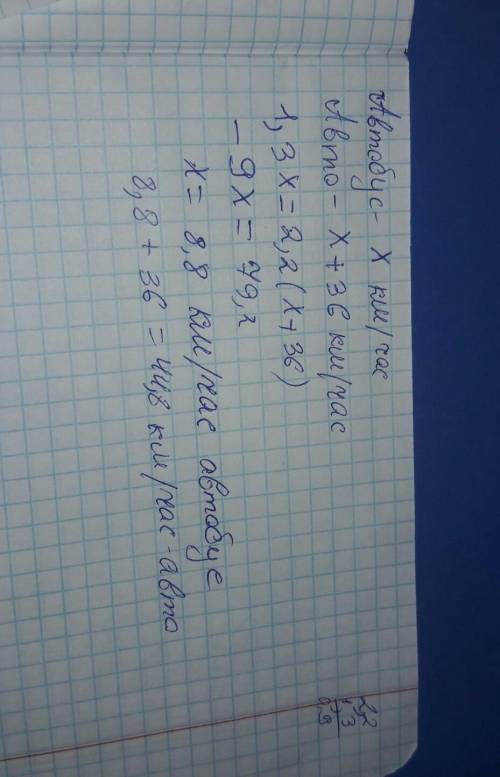 Автобус - х км/час
Авто - х + 36 км/час
1,3х = 2,2(х + 36)
- 9х = 79,2
х = 8,8 км/час автобус
8,8 + 36 = 44,8 км/час - авто
2,2
1,3
0,9